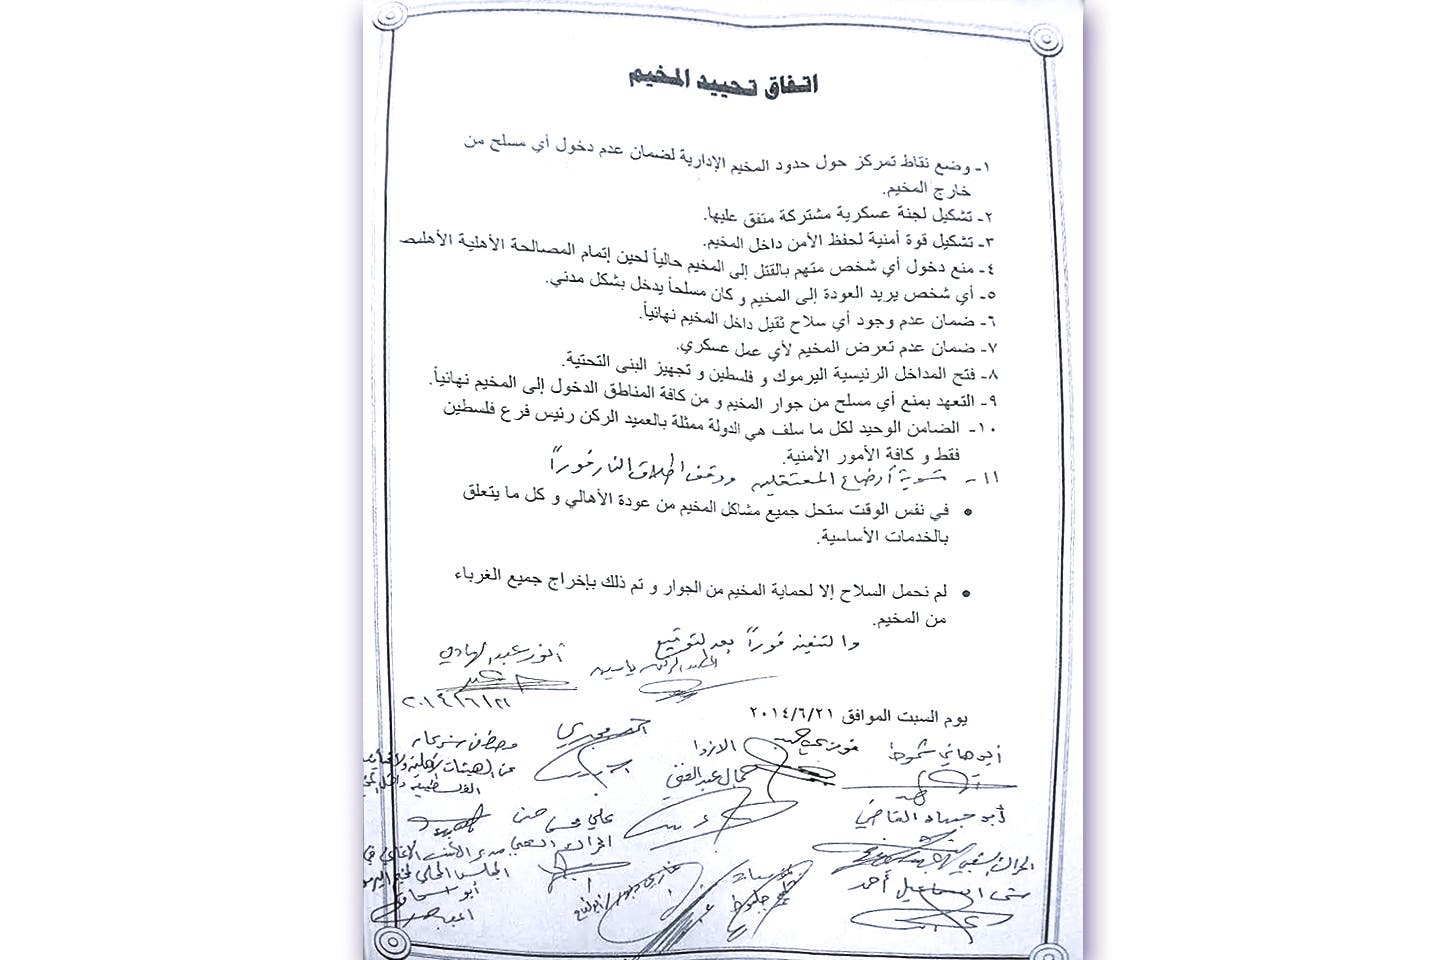 اتفاق تحييد المخيم
١- وضع نقاط تمركز حول حدود المخيم الإدارية لضمان عدم دخول أي مسلح من
خارج المخيم.
٢- تشكيل لجنة عسكرية مشتركة متفق عليها.
٣- تشكيل قوة أمنية لحفظ الأمن داخل المخيم.
٤- منع دخول أي شخص متهم بالقتل إلى المخيم حالياً لحين إتمام المصالحة الأهلية
٥- أي شخص يريد العودة إلى المخيم و كان مسلحاً يدخل بشكل مدني.
٦- ضمان عدم وجود أي سلاح ثقيل داخل المخيم نهائياً.
٧- ضمان عدم تعرض المخيم لأي عمل عسكري.
٨- فتح المداخل الرئيسية اليرموك و فلسطين و تجهيز البنى التحتية.
٩- التعهد بمنع أي مسلح من جوار المخيم و من كافة المناطق الدخول إلى المخيم نهائياً.
١٠- الضامن الوحيد لكل ما سلف هي الدولة ممثلة بالعميد الركن رئيس فرع فلسطين
فقط و كافة الأمور الأمنية.
١١- تسوية أوضاع المعتقلين ووقف اطلاق النار فوراً
• في نفس الوقت ستحل جميع مشاكل المخيم من عودة الأهالي و كل ما يتعلق
بالخدمات الأساسية.
• لم نحمل السلاح إلا لحماية المخيم من الجوار و تم ذلك بإخراج جميع الغرباء
من المخيم.
والتنفيذ فوراً بعد التوقيع
أنور عبد الهادي
العميد الركن ياسين
٢٠١٤/٦/٢١
يوم السبت الموافق ٢٠١٤/٦/٢١
أبو هاني شموط
فوزي حميد
الاونروا
جمال عبد الغني
أبو جهاد القاضي
علي محسن حسن
المجلس المحلي